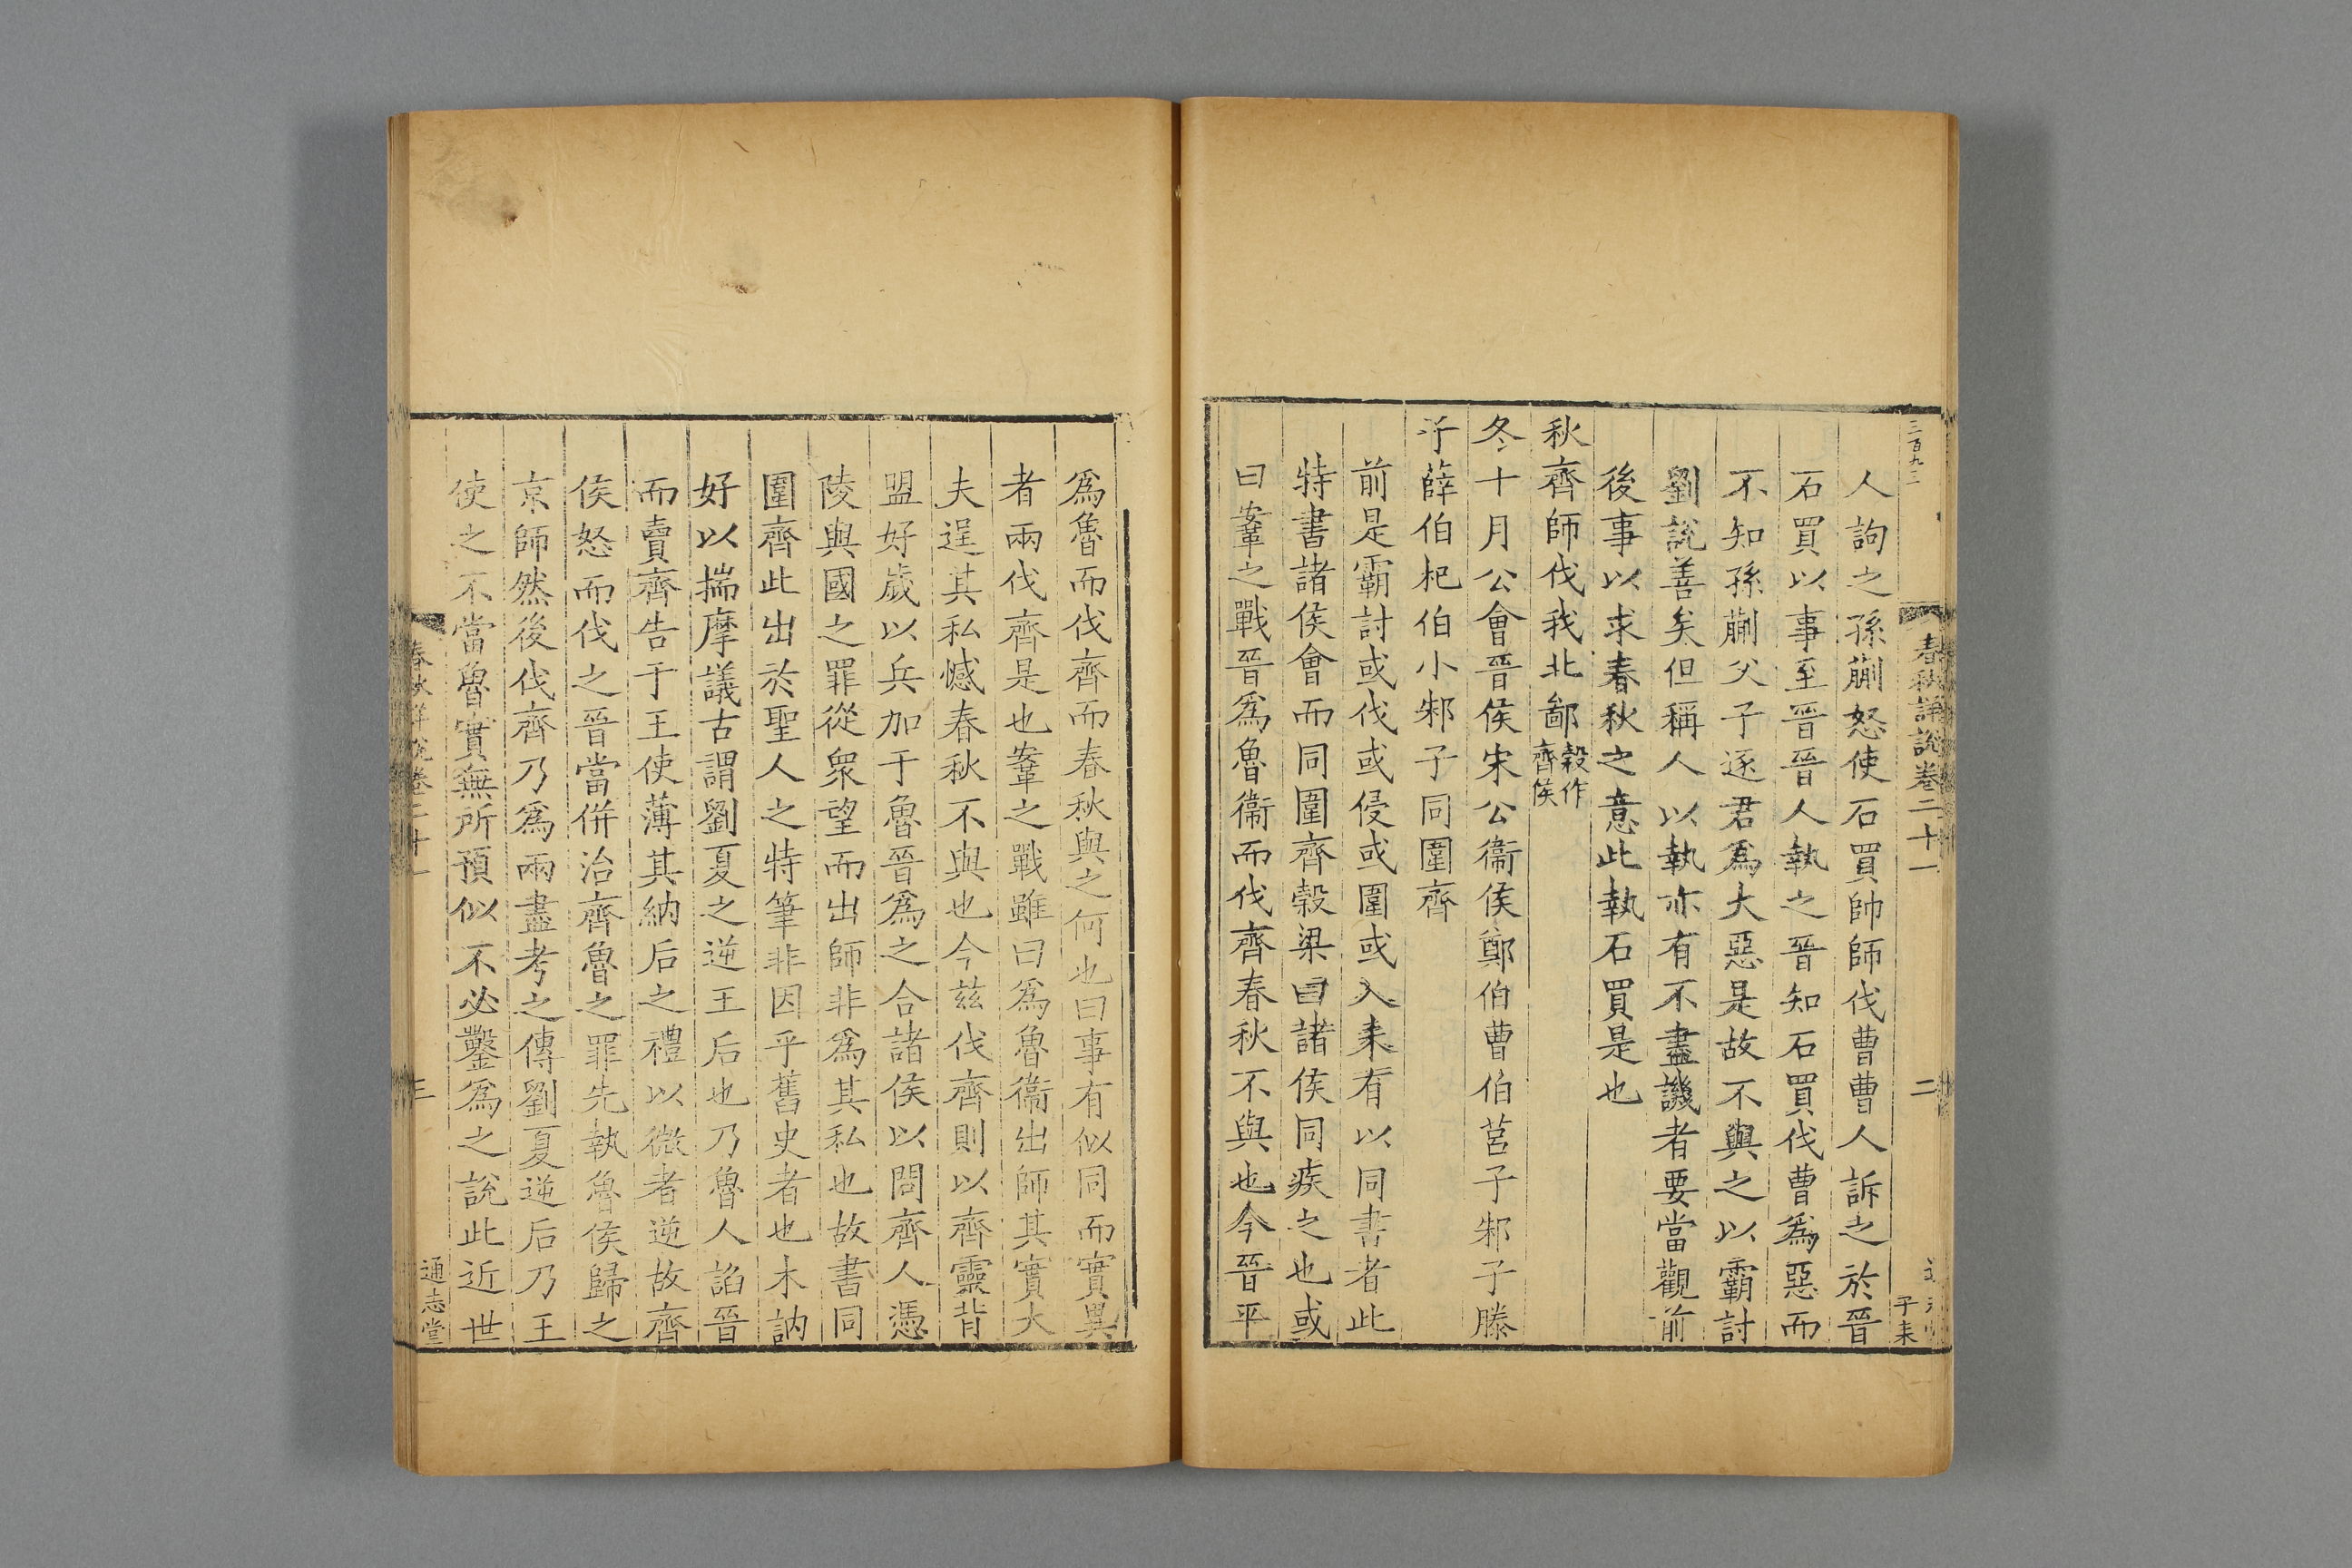 三百九二
春秋詳說卷二十一
二
子耒
人詢之孫蒯怒使石買帥師伐曹曹人訴之於晉
石買以事至晉晉人執之晉知石買伐曹爲惡而
不知孫蒯父子逐君爲大惡是故不與之以霸討
劉說善矣但稱人以執亦有不盡譏者要當觀前
後事以求春秋之意此執石買是也
秋齊師伐我北鄙穀作齊侯
冬十月公會晉侯宋公衞侯鄭伯曹伯莒子邾子滕
子薛伯杞伯小邾子同圍齊
前是霸討或伐或侵或圍或入耒有以同書者此
特書諸侯會而同圍齊穀梁曰諸侯同疾之也或
曰鞌之戰晉爲魯衞而伐齊春秋不與也今晉平
爲魯而伐齊而春秋與之何也曰事有似同而實異
者兩伐齊是也鞌之戰雖曰爲魯衞出師其實大
夫逞其私憾春秋不與也今兹伐齊則以齊靈背
盟好歲以兵加于魯晉爲之合諸侯以問齊人憑
陵與國之罪從衆望而出師非爲其私也故書同
圍齊此出於聖人之特筆非因乎舊史者也木訥
好以揣摩議古謂劉夏之逆王后也乃魯人諂晉
而賣齊告于王使薄其納后之禮以微者逆故齊
侯怒而伐之晉當併治齊魯之罪先執魯侯歸之
京師然後伐齊乃爲兩盡考之傳劉夏逆后乃王
使之不當魯實無所預似不必鑿爲之說此近世
春秋詳說卷二十一
三
通志堂